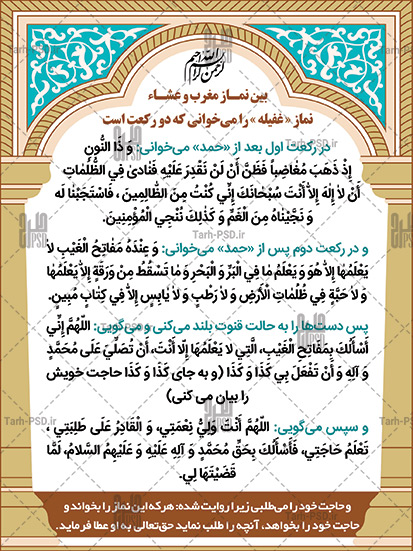 بسم الله الرحمن الرحیم
بین نمـاز مغرب و عشـاء
نماز «غفیله» را می‌خوانی که دو رکعت است
در رکعت اول بعد از «حمد» می‌خوانی: وَ ذَا النُّونِ
إِذْ ذَهَبَ مُغَاضِباً فَظَنَّ أَنْ لَنْ نَقْدِرَ عَلَيْهِ فَنَادَىٰ فِي الظُّلُمَاتِ
أَنْ لاٰ إِلٰهَ إِلاَّ أَنْتَ سُبْحَانَكَ إِنِّي كُنْتُ مِنَ الظَّالِمِينَ ، فَاسْتَجَبْنَا لَهُ
وَ نَجَّيْنَاهُ مِنَ الْغَمِّ وَ كَذٰلِكَ نُنْجِي الْمُؤْمِنِينَ.
و در رکعت دوم پس از «حمد» می‌خوانی: وَ عِنْدَهُ مَفَاتِحُ الْغَيْبِ لاٰ
يَعْلَمُهَا إِلاَّ هُوَ وَ يَعْلَمُ مَا فِي الْبَرِّ وَ الْبَحْرِ وَ مَا تَسْقُطُ مِنْ وَرَقَةٍ إِلاَّ يَعْلَمُهَا
وَ لاٰ حَبَّةٍ فِي ظُلُمَاتِ الْأَرْضِ وَ لاٰ رَطْبٍ وَ لاٰ يَابِسٍ إِلاَّ فِي كِتَابٍ مُبِينٍ.
پس دست‌ها را به حالت قنوت بلند می‌کنی و می‌گویی: اللّٰهُمَّ إِنِّي
أَسْأَلُكَ بِمَفَاتِحِ الْغَيْبِ، الَّتِي لاٰ يَعْلَمُهَا إِلاَّ أَنْتَ، أَنْ تُصَلِّيَ عَلَى مُحَمَّدٍ
وَ آلِهِ وَ أَنْ تَفْعَلَ بِي كَذَا وَ كَذَا (و به جای کَذَا وَ کَذَا حاجت خویش
را بیان می کنی)
و سپس می‌گویی: اللّٰهُمَّ أَنْتَ وَلِيُّ نِعْمَتِي، وَ الْقَادِرُ عَلَى طَلِبَتِي ،
تَعْلَمُ حَاجَتِي، فَأَسْأَلُكَ بِحَقِّ مُحَمَّدٍ وَ آلِهِ عَلَيْهِ وَ عَلَيْهِمُ السَّلامُ، لَمَّا
قَضَيْتَهَا لِي.
و حاجت خود را می‌طلبی زیرا روایت شده: هر که این نماز را بخواند و
حاجت خود را بخواهد، آنچه را طلب نماید حق‌تعالی به او عطا فرماید.
Tarh-PSD.ir